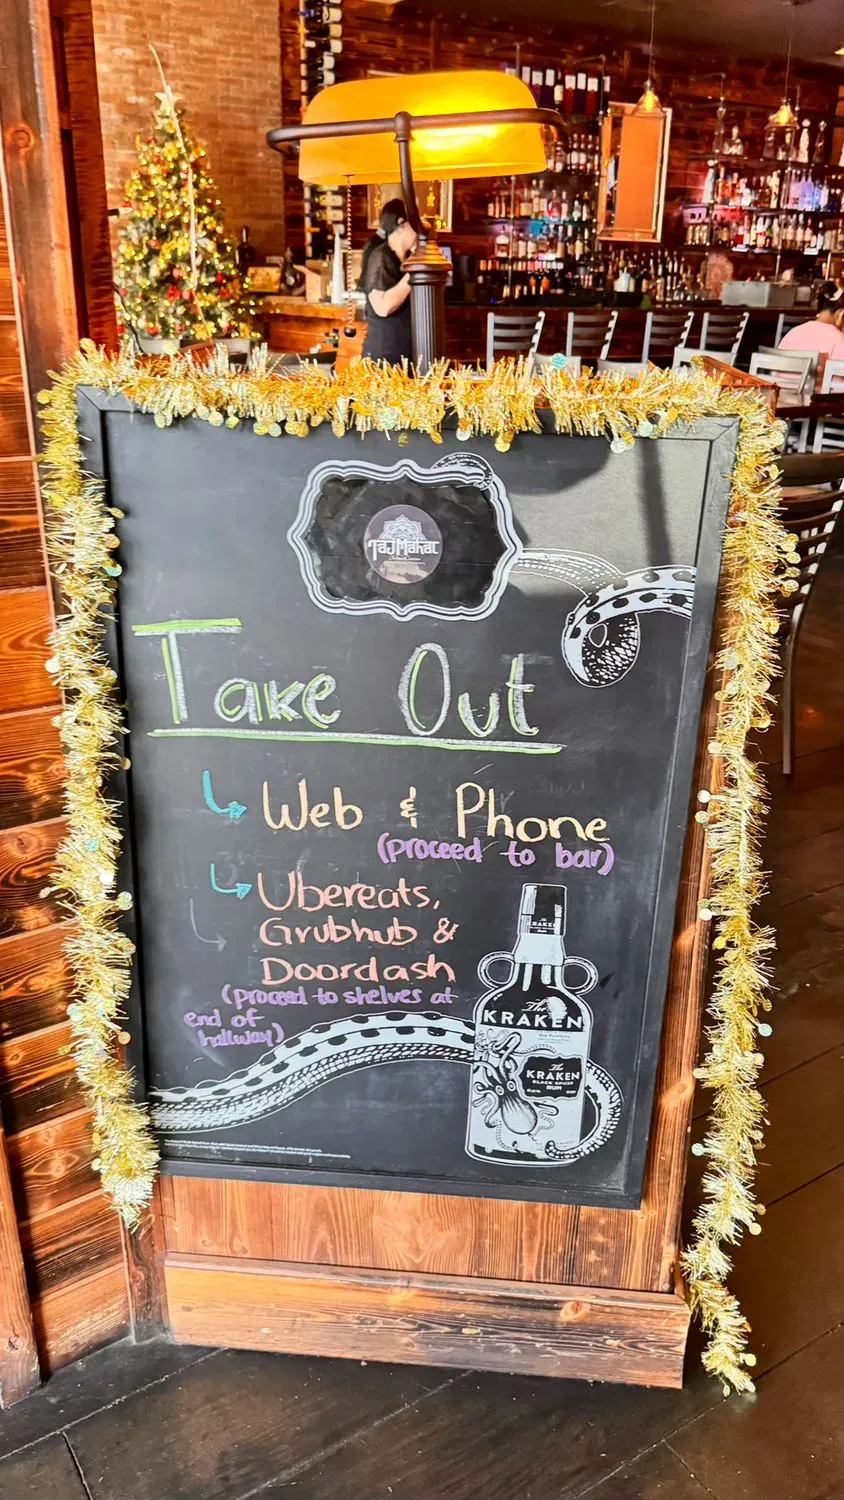 TajMahal
Take Out
Web & Phone
(proceed to bar)
Ubereats,
Grubhub &
Doordash
(proceed to shelves at
end of
hallway)
KRAKEN
The
KRAKEN
The
KRAKEN
BLACK SPICED
RUM